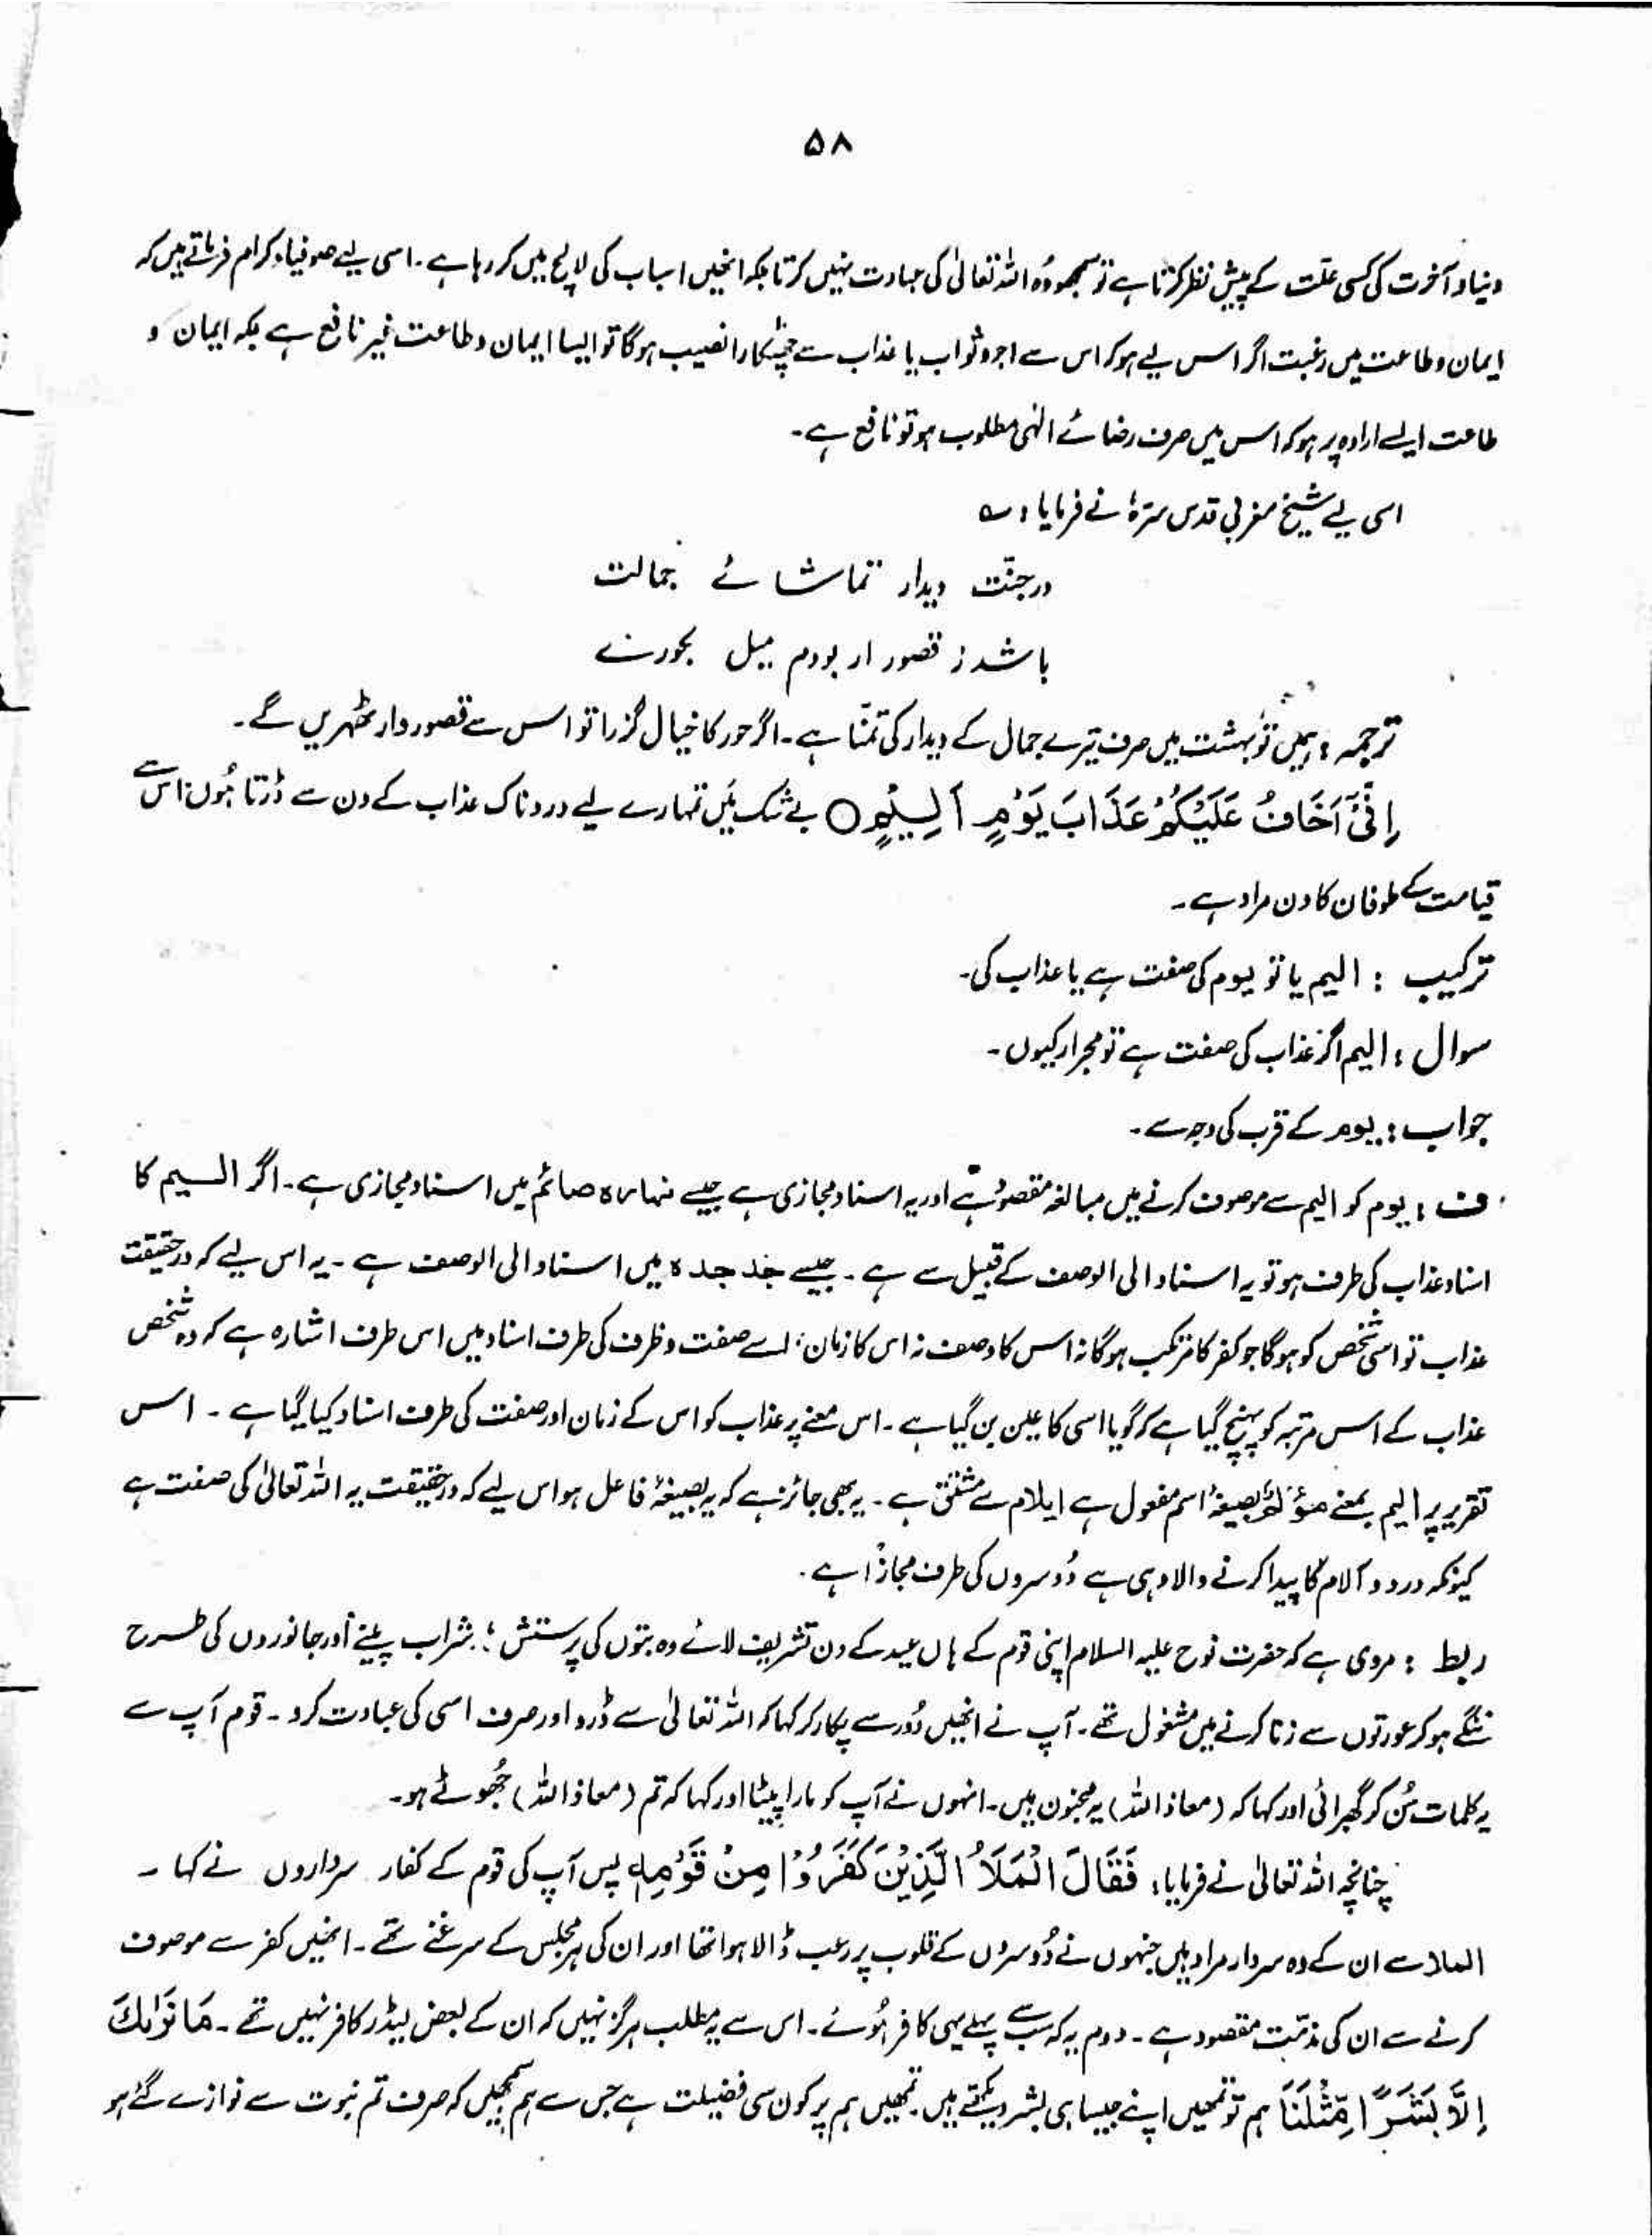 ۵۸
دنیا و آخرت کی کسی علّت کے پیشِ نظر کرتا ہے تو سمجھو وُہ اللہ تعالیٰ کی عبادت نہیں کرتا بلکہ انھیں اسباب کی لالچ میں کر رہا ہے ۔ اسی لیے صوفیاء کرام فرماتے ہیں کہ
ایمان و طاعت میں رغبت اگر اس لیے ہو کہ اس سے اجر و ثواب یا عذاب سے چھٹکارا نصیب ہو گا تو ایسا ایمان و طاعت غیر نافع ہے بلکہ ایمان و
طاعت ایسے ارادہ پر ہو کہ اس میں صرف رضائے الٰہی مطلوب ہو تو نافع ہے ۔
اسی لیے شیخ مغربی قدس سترہٗ نے فرمایا : ؎
در جنّت دیدار تماشائے جمالت
باشد ز قصور ار بودم میل بحورے
ترجمہ : ہمیں تو بہشت میں صرف تیرے جمال کے دیدار کی تمنّا ہے ۔ اگر حور کا خیال گزرا تو اس سے قصور وار ٹھہریں گے ۔
اِنِّیْٓ اَخَافُ عَلَیْکُمْ عَذَابَ یَوْمٍ اَلِیْمٍ ○ بے شک میں تمہارے لیے دردناک عذاب کے دن سے ڈرتا ہُوں ؛ اس سے
قیامت کے طوفان کا دن مراد ہے ۔
ترکیب : الیم یا تو یوم کی صفت ہے یا عذاب کی ۔
سوال : الیم اگر عذاب کی صفت ہے تو مجرار کیوں ۔
جواب : یوم کے قرب کی وجہ سے ۔
ف : یوم کو الیم سے موصوف کرنے میں مبالغہ مقصود ہے اور یہ اسناد مجازی ہے جیسے نہارہ صائم میں اسناد مجازی ہے ۔ اگر الیم کا
اسناد عذاب کی طرف ہو تو یہ اسناد الی الوصف کے قبیل سے ہے ۔ جیسے جذ جدہ میں اسناد الی الوصف ہے ۔ یہ اس لیے کہ درحقیقت
عذاب تو اسی شخص کو ہو گا جو کفر کا مرتکب ہو گا نہ اس کا وصف نہ اس کا زمان ؛ اسے صفت و ظرف کی طرف اسناد میں اس طرف اشارہ ہے کہ وہ شخص
عذاب کے اس مرتبہ کو پہنچ گیا ہے کہ گویا اسی کا عین بن گیا ہے ۔ اس معنے پر عذاب کو اس کے زمان اور صفت کی طرف اسناد کیا گیا ہے ۔ اس
تقریر پر الیم بمعنے مؤلَم بصیغۂ اسم مفعول ہے ایلام سے مشتق ہے ۔ یہ بھی جائز ہے کہ یہ بصیغۂ فاعل ہو اس لیے کہ درحقیقت یہ اللہ تعالیٰ کی صفت ہے
کیونکہ درد و آلام کا پیدا کرنے والا وہی ہے دُوسروں کی طرف مجازًا ہے ۔
ربط : مروی ہے کہ حضرت نوح علیہ السلام اپنی قوم کے ہاں عید کے دن تشریف لائے وہ بتوں کی پرستش ؛ شراب پینے اور جانوروں کی طرح
ننگے ہو کر عورتوں سے زنا کرنے میں مشغول تھے ۔ آپ نے انھیں دُور سے پکار کر کہا کہ اللہ تعالیٰ سے ڈرو اور صرف اسی کی عبادت کرو ۔ قوم آپ سے
یہ کلمات سُن کر گھبرائی اور کہا کہ ( معاذ اللہ ) یہ مجنون ہیں ۔ انہوں نے آپ کو مارا پیٹا اور کہا کہ تم ( معاذ اللہ ) جھُوٹے ہو ۔
چنانچہ اللہ تعالیٰ نے فرمایا : فَقَالَ الْمَلَاُ الَّذِیْنَ کَفَرُوْا مِنْ قَوْمِہٖ پس آپ کی قوم کے کفار سرداروں نے کہا ۔
الملا سے ان کے وہ سردار مراد ہیں جنہوں نے دُوسروں کے قلوب پر رعب ڈالا ہوا تھا اور ان کی ہر مجلس کے سرغنے تھے ۔ انھیں کفر سے موصوف
کرنے سے ان کی مذمّت مقصود ہے ۔ دوم یہ کہ سب سے پہلے یہی کافر ہُوئے ۔ اس سے یہ مطلب ہرگز نہیں کہ ان کے بعض لیڈر کافر نہیں تھے ۔ مَا نَرٰىكَ
اِلَّا بَشَرًا مِّثْلَنَا ہم تو تمھیں اپنے جیسا ہی بشر دیکھتے ہیں ۔ تمھیں ہم پر کون سی فضیلت ہے جس سے ہم سمجھیں کہ صرف تم نبوت سے نوازے گئے ہو